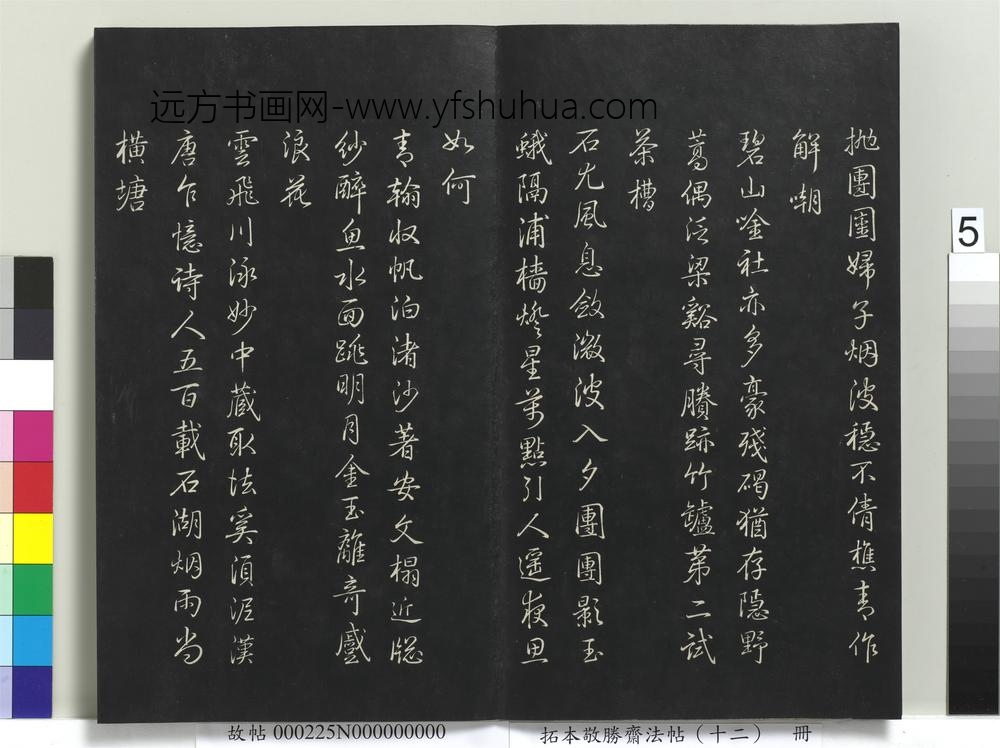 远方书画网-www.yfshuhua.com
抛團圞婦子烟波穩不倩樵青作
解嘲
碧山唫社亦多豪殘碣猶存隠野
蒿偶泛梁谿尋賸跡竹罏第二試
茶槽
石尤風息斂澂波入夕團團影玉
蛾隔浦檣燈星萬點引人遥夜思
如何
青翰収帆泊渚沙著安文榻近牕
紗醉魚水面跳明月金玉離奇蹙
浪花
雲飛川泳妙中蔵取法奚須泥漢
唐乍憶诗人五百載石湖烟雨尚
橫塘
5
故帖 000225N000000000
拓本敬勝齋法帖（十二） 冊